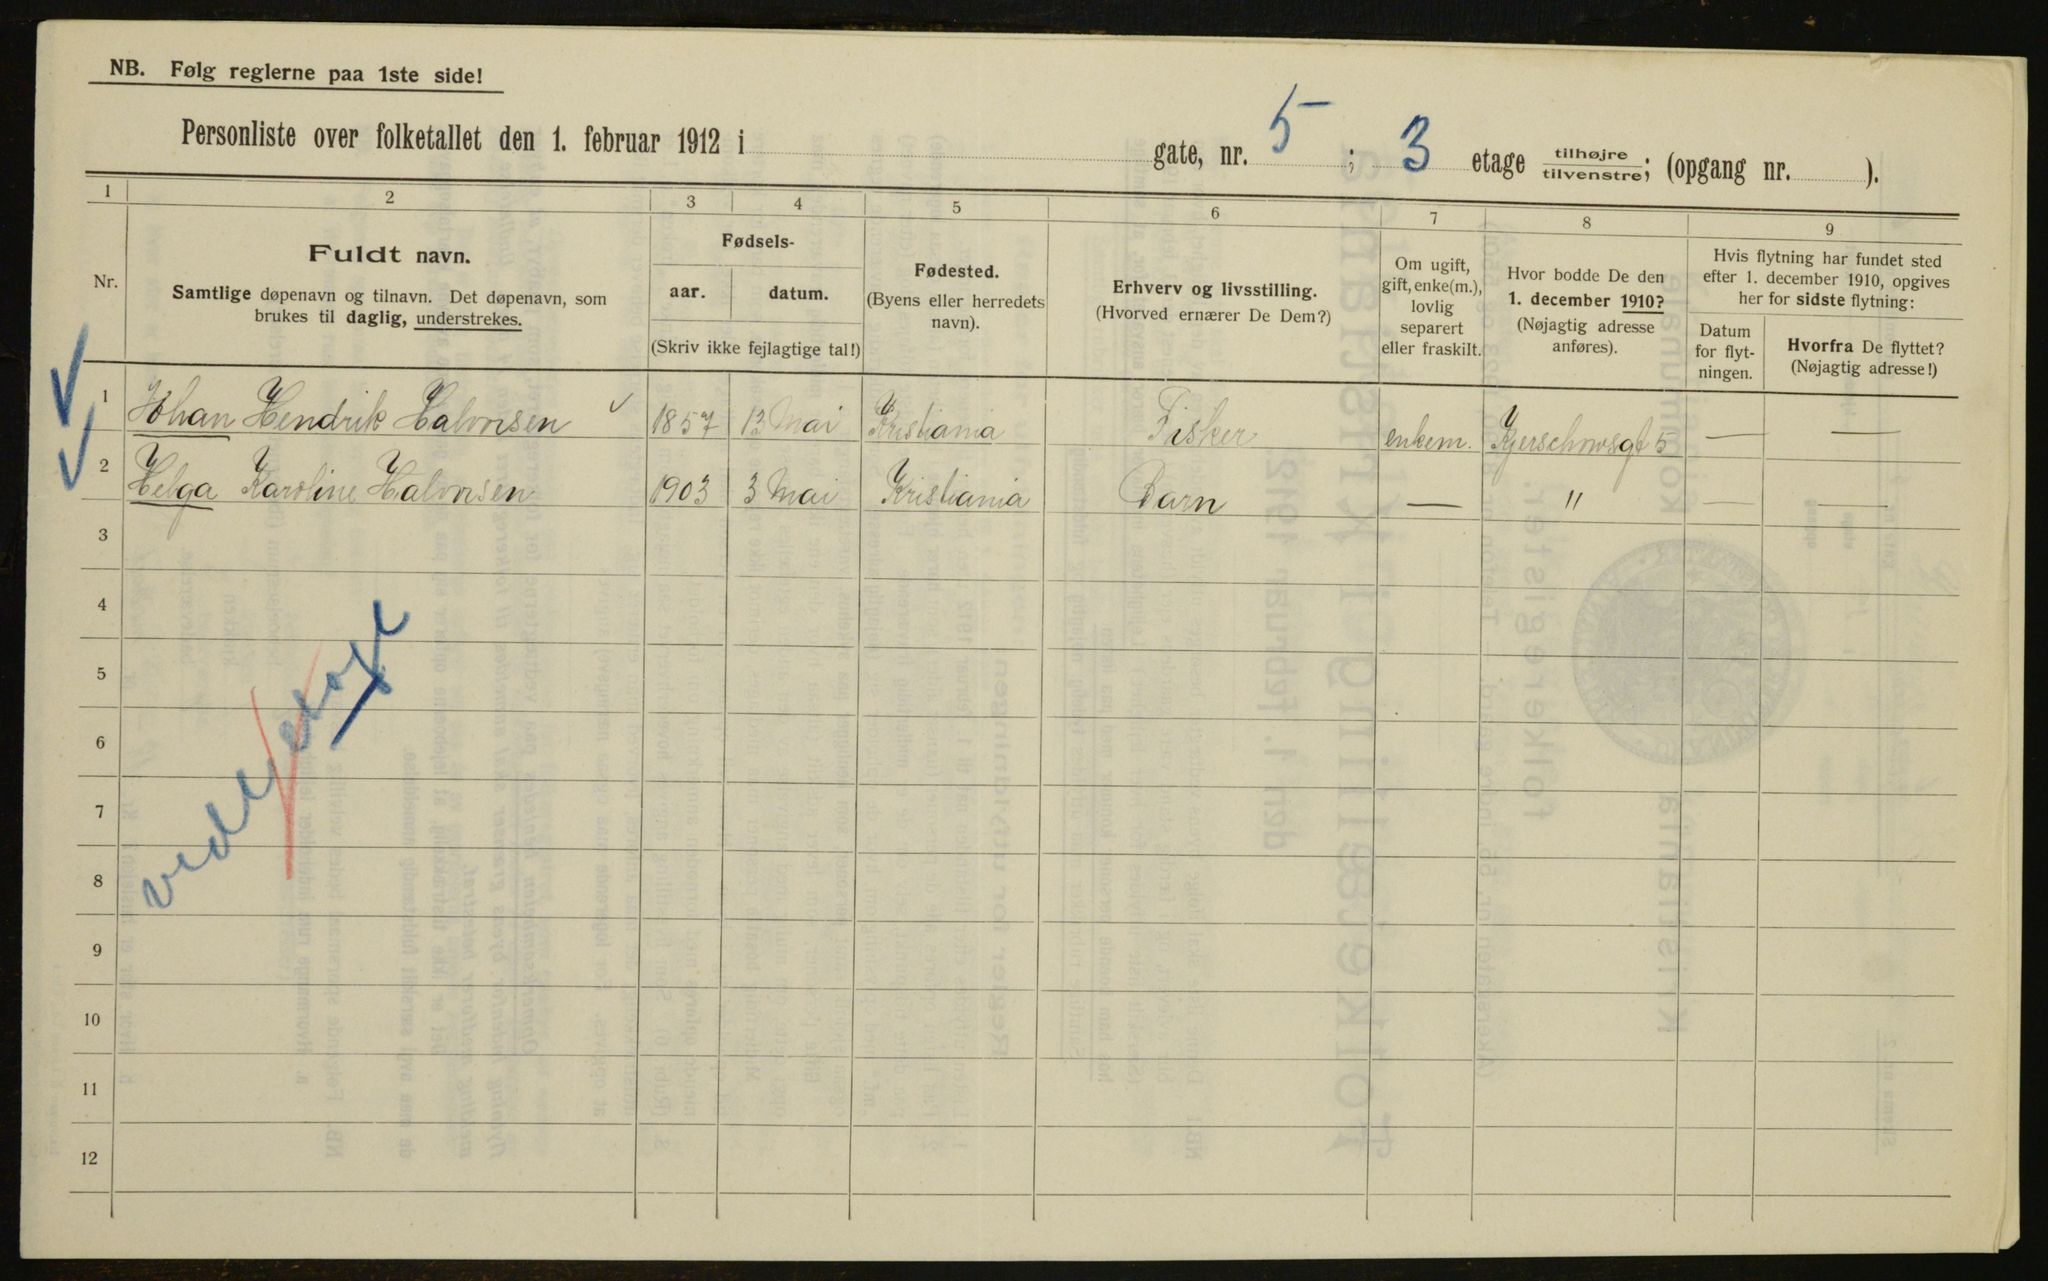 NB. Følg reglerne paa 1ste side!
Personliste over folketallet den 1. februar 1912 i gate, nr. 5 ; 3 etage tilhøjre tilvenstre; (opgang nr. ).
1 2 3 4 5 6 7 8 9
Nr.
Fuldt navn.
Samtlige døpenavn og tilnavn. Det døpenavn, som
brukes til daglig, understrekes.
Fødsels-
aar. datum.
(Skriv ikke fejlagtige tal!)
Fødested.
(Byens eller herredets
navn).
Erhverv og livsstilling.
(Hvorved ernærer De Dem?)
Om ugift,
gift, enke(m.),
lovlig
separert
eller fraskilt.
Hvor bodde De den
1. december 1910?
(Nøjagtig adresse
anføres).
Hvis flytning har fundet sted
efter 1. december 1910, opgives
her for sidste flytning:
Datum
for flyt-
ningen.
Hvorfra De flyttet?
(Nøjagtig adresse!)
1 Johan Hendrik Halvorsen 1857 13 Mai Kristiania Fisker enkem. Kjerschowsgt 5 — —
2 Helga Karoline Halvorsen 1903 3 Mai Kristiania Barn — " — —
3
4
5
6
7
8
9
10
11
12